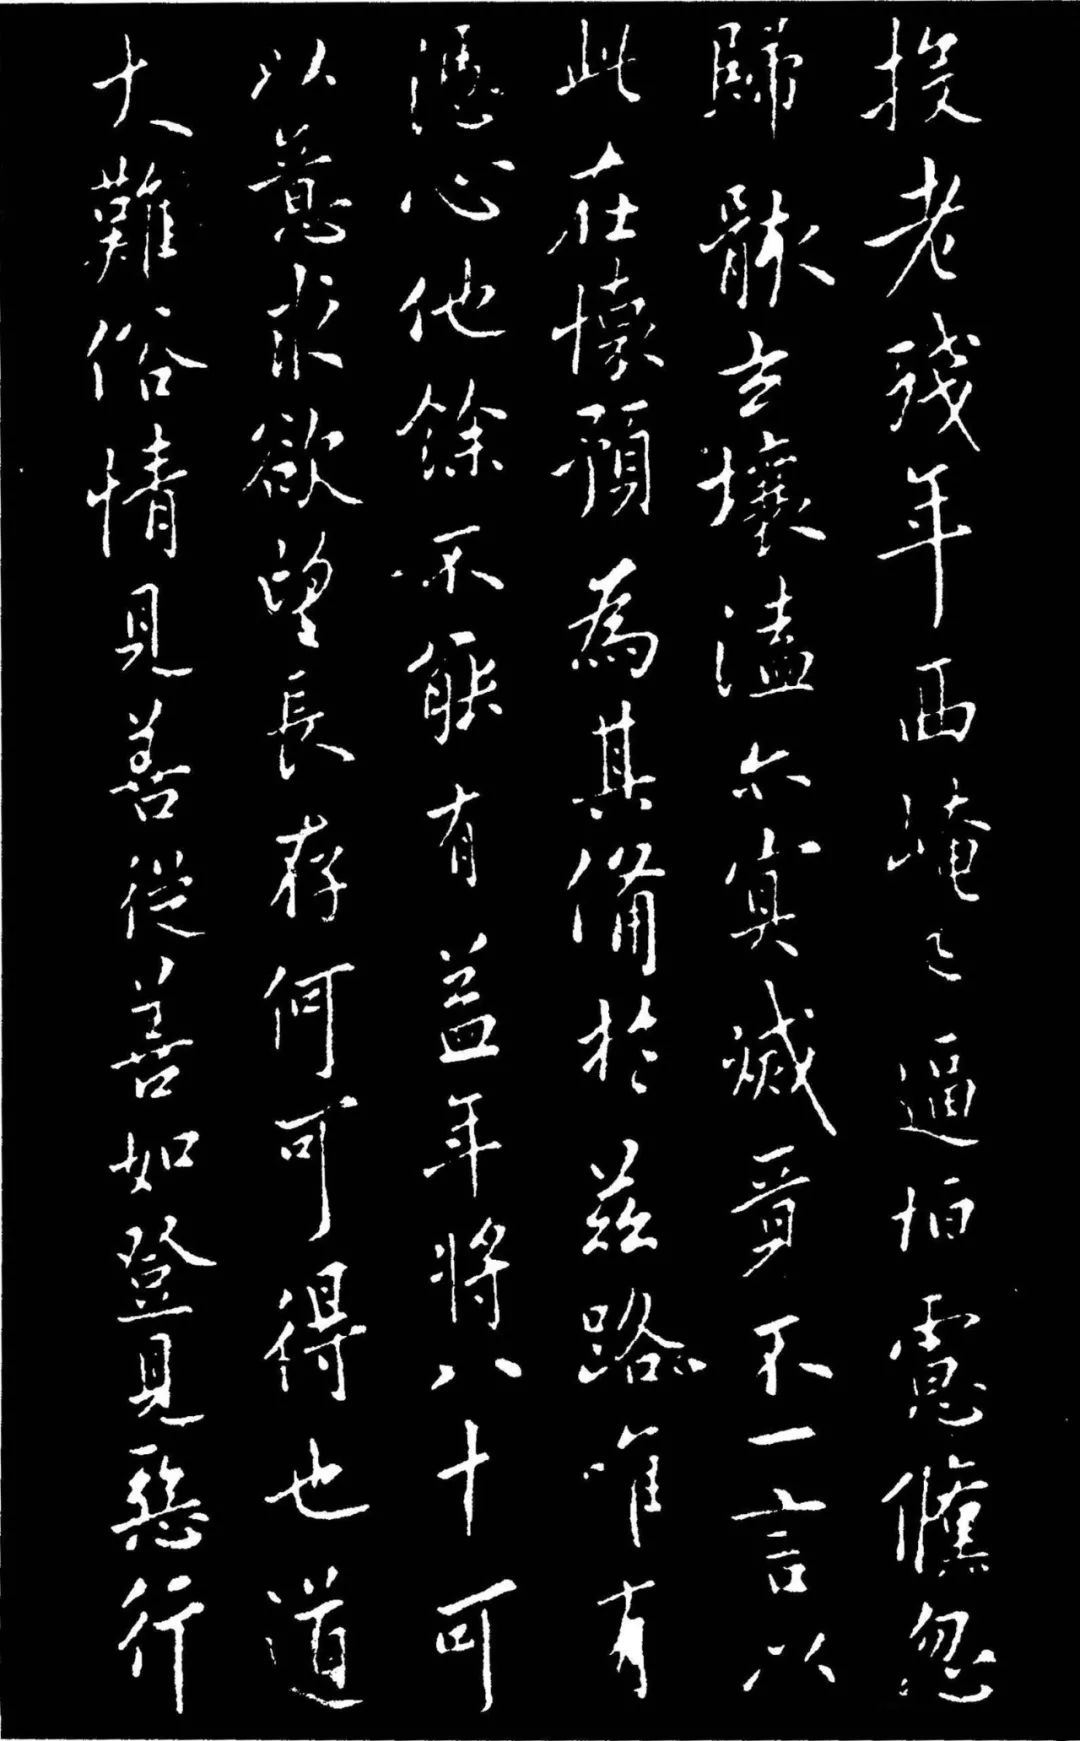 投老殘年西崦已逼怕處儵忽
歸骸玄壤溘尒冥滅可不一言以
此在懷預為其備於茲路唯有
憑心他餘不能有益年將八十可
以意求欲望長存何可得也道
大難俗情見善從善如登見惡行